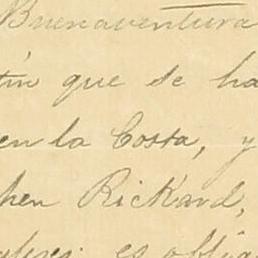 Buenaventura
tín que se ha
en la Costa, y
hen Rickard,